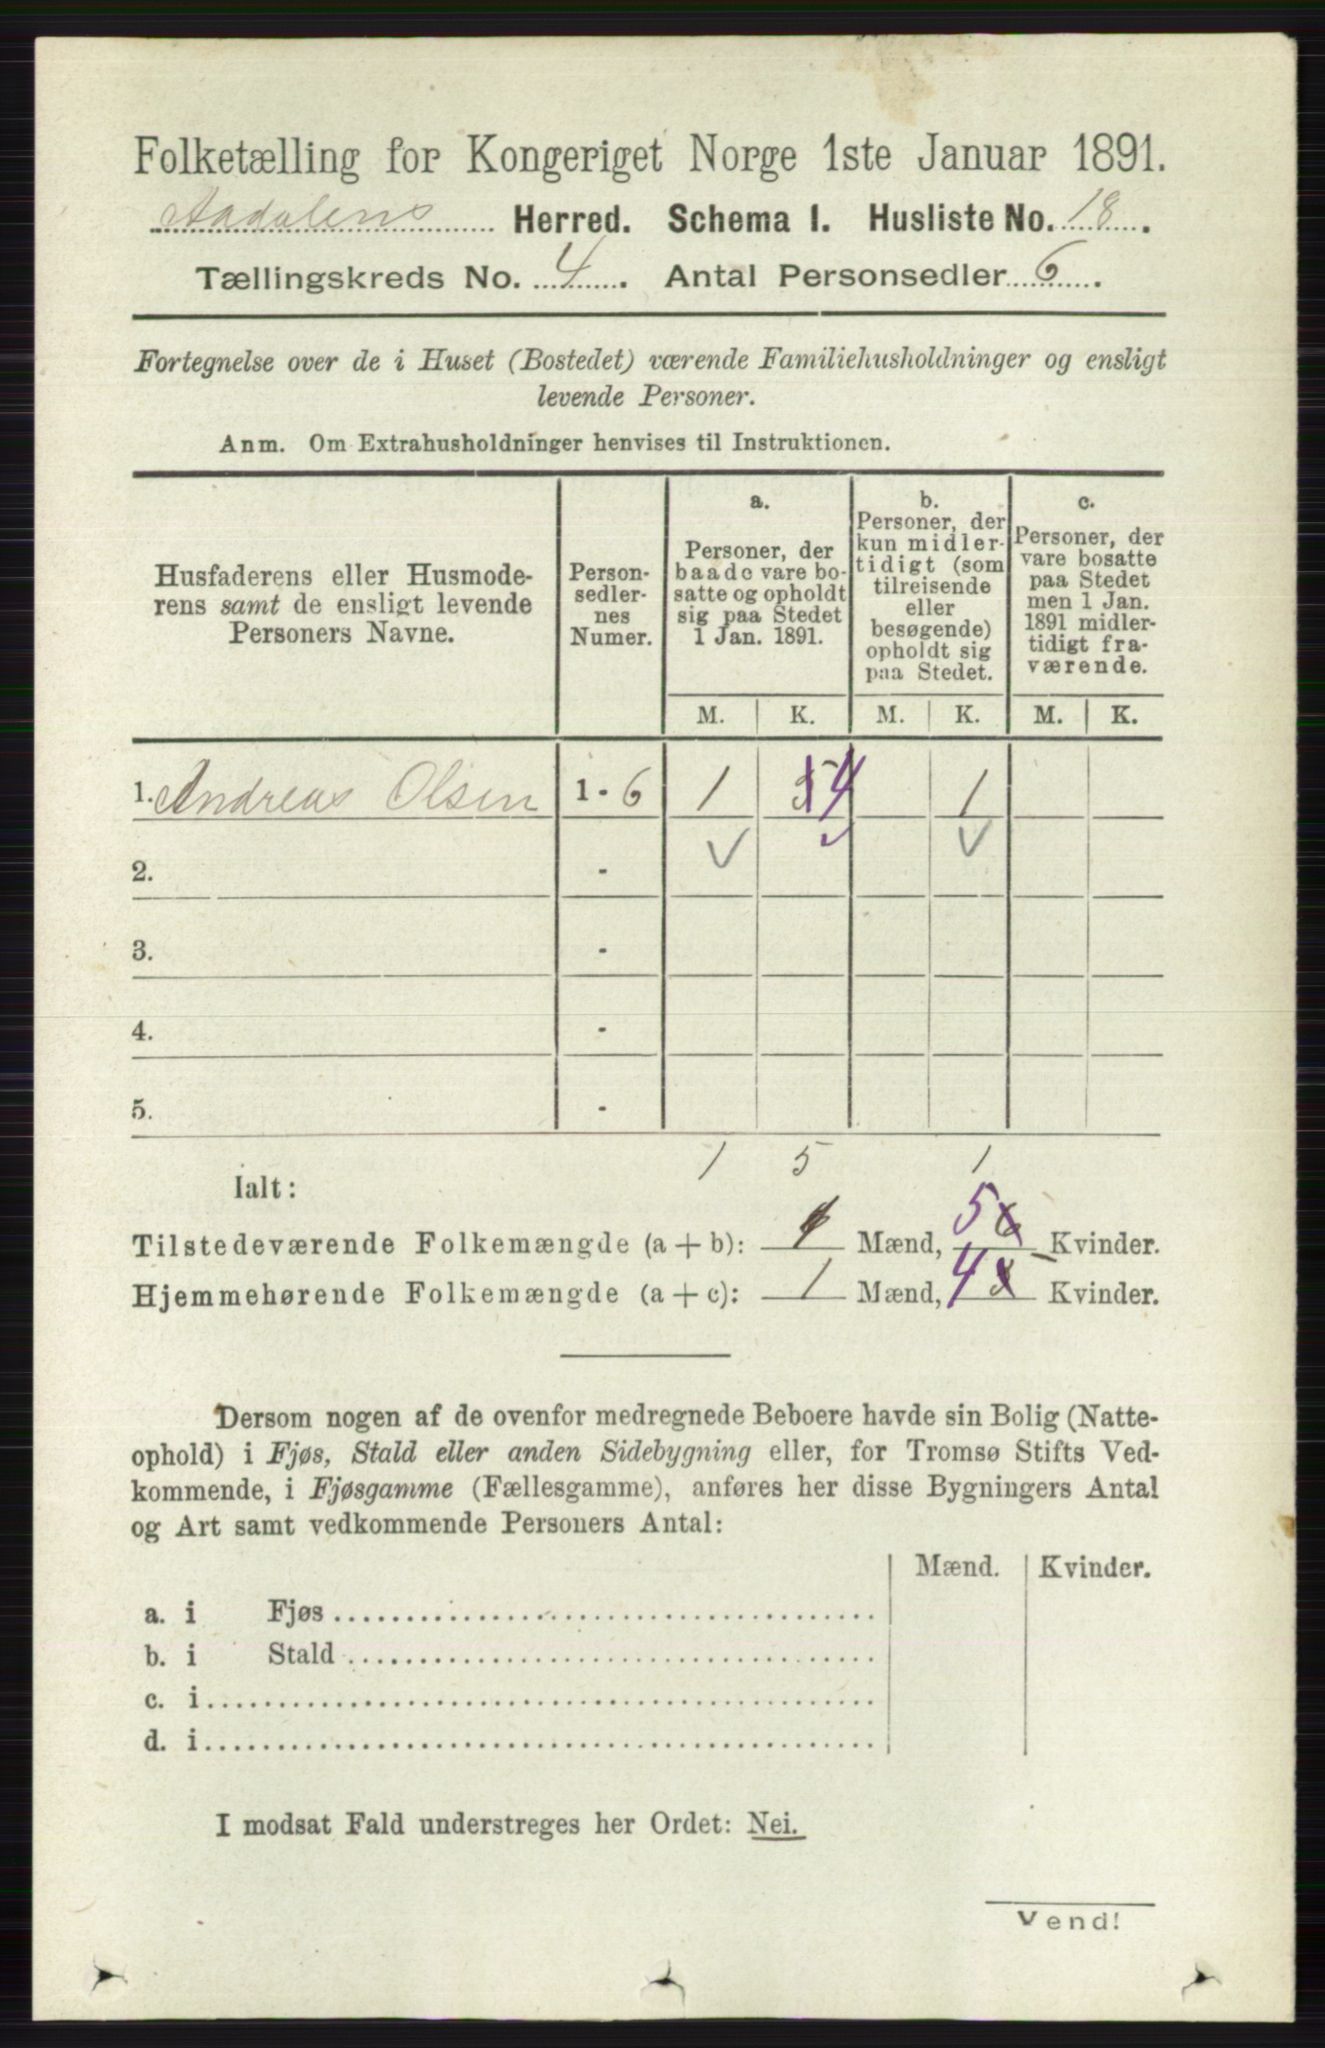 Folketælling for Kongeriget Norge 1ste Januar 1891.
Aadalens Herred. Schema I. Husliste No. 18.
Tællingskreds No. 4. Antal Personsedler 6.
Fortegnelse over de i Huset (Bostedet) værende Familiehusholdninger og ensligt
levende Personer.
Anm. Om Extrahusholdninger henvises til Instruktionen.
Husfaderens eller Husmode-
rens samt de ensligt levende
Personers Navne.
Person-
sedler-
nes
Numer.
a.
Personer, der
baade vare bo-
satte og opholdt
sig paa Stedet
1 Jan. 1891.
b.
Personer, der
kun midler-
tidigt (som
tilreisende
eller
besøgende)
opholdt sig
paa Stedet.
c.
Personer, der
vare bosatte
paa Stedet
men 1 Jan.
1891 midler-
tidigt fra-
værende.
M. K. M. K. M. K.
1. Andreas Olsen 1 - 6 1 5 4 1
2. -
3. -
4. -
5. -
1 5 1
Ialt:
Tilstedeværende Folkemængde (a + b): 1 Mænd, 5 6 Kvinder.
Hjemmehørende Folkemængde (a + c): 1 Mænd, 4 5 Kvinder.
Dersom nogen af de ovenfor medregnede Beboere havde sin Bolig (Natte-
ophold) i Fjøs, Stald eller anden Sidebygning eller, for Tromsø Stifts Ved-
kommende, i Fjøsgamme (Fællesgamme), anføres her disse Bygningers Antal
og Art samt vedkommende Personers Antal:
Mænd. Kvinder.
a. i Fjøs
b. i Stald
c. i
d. i
I modsat Fald understreges her Ordet: Nei.
Vend!